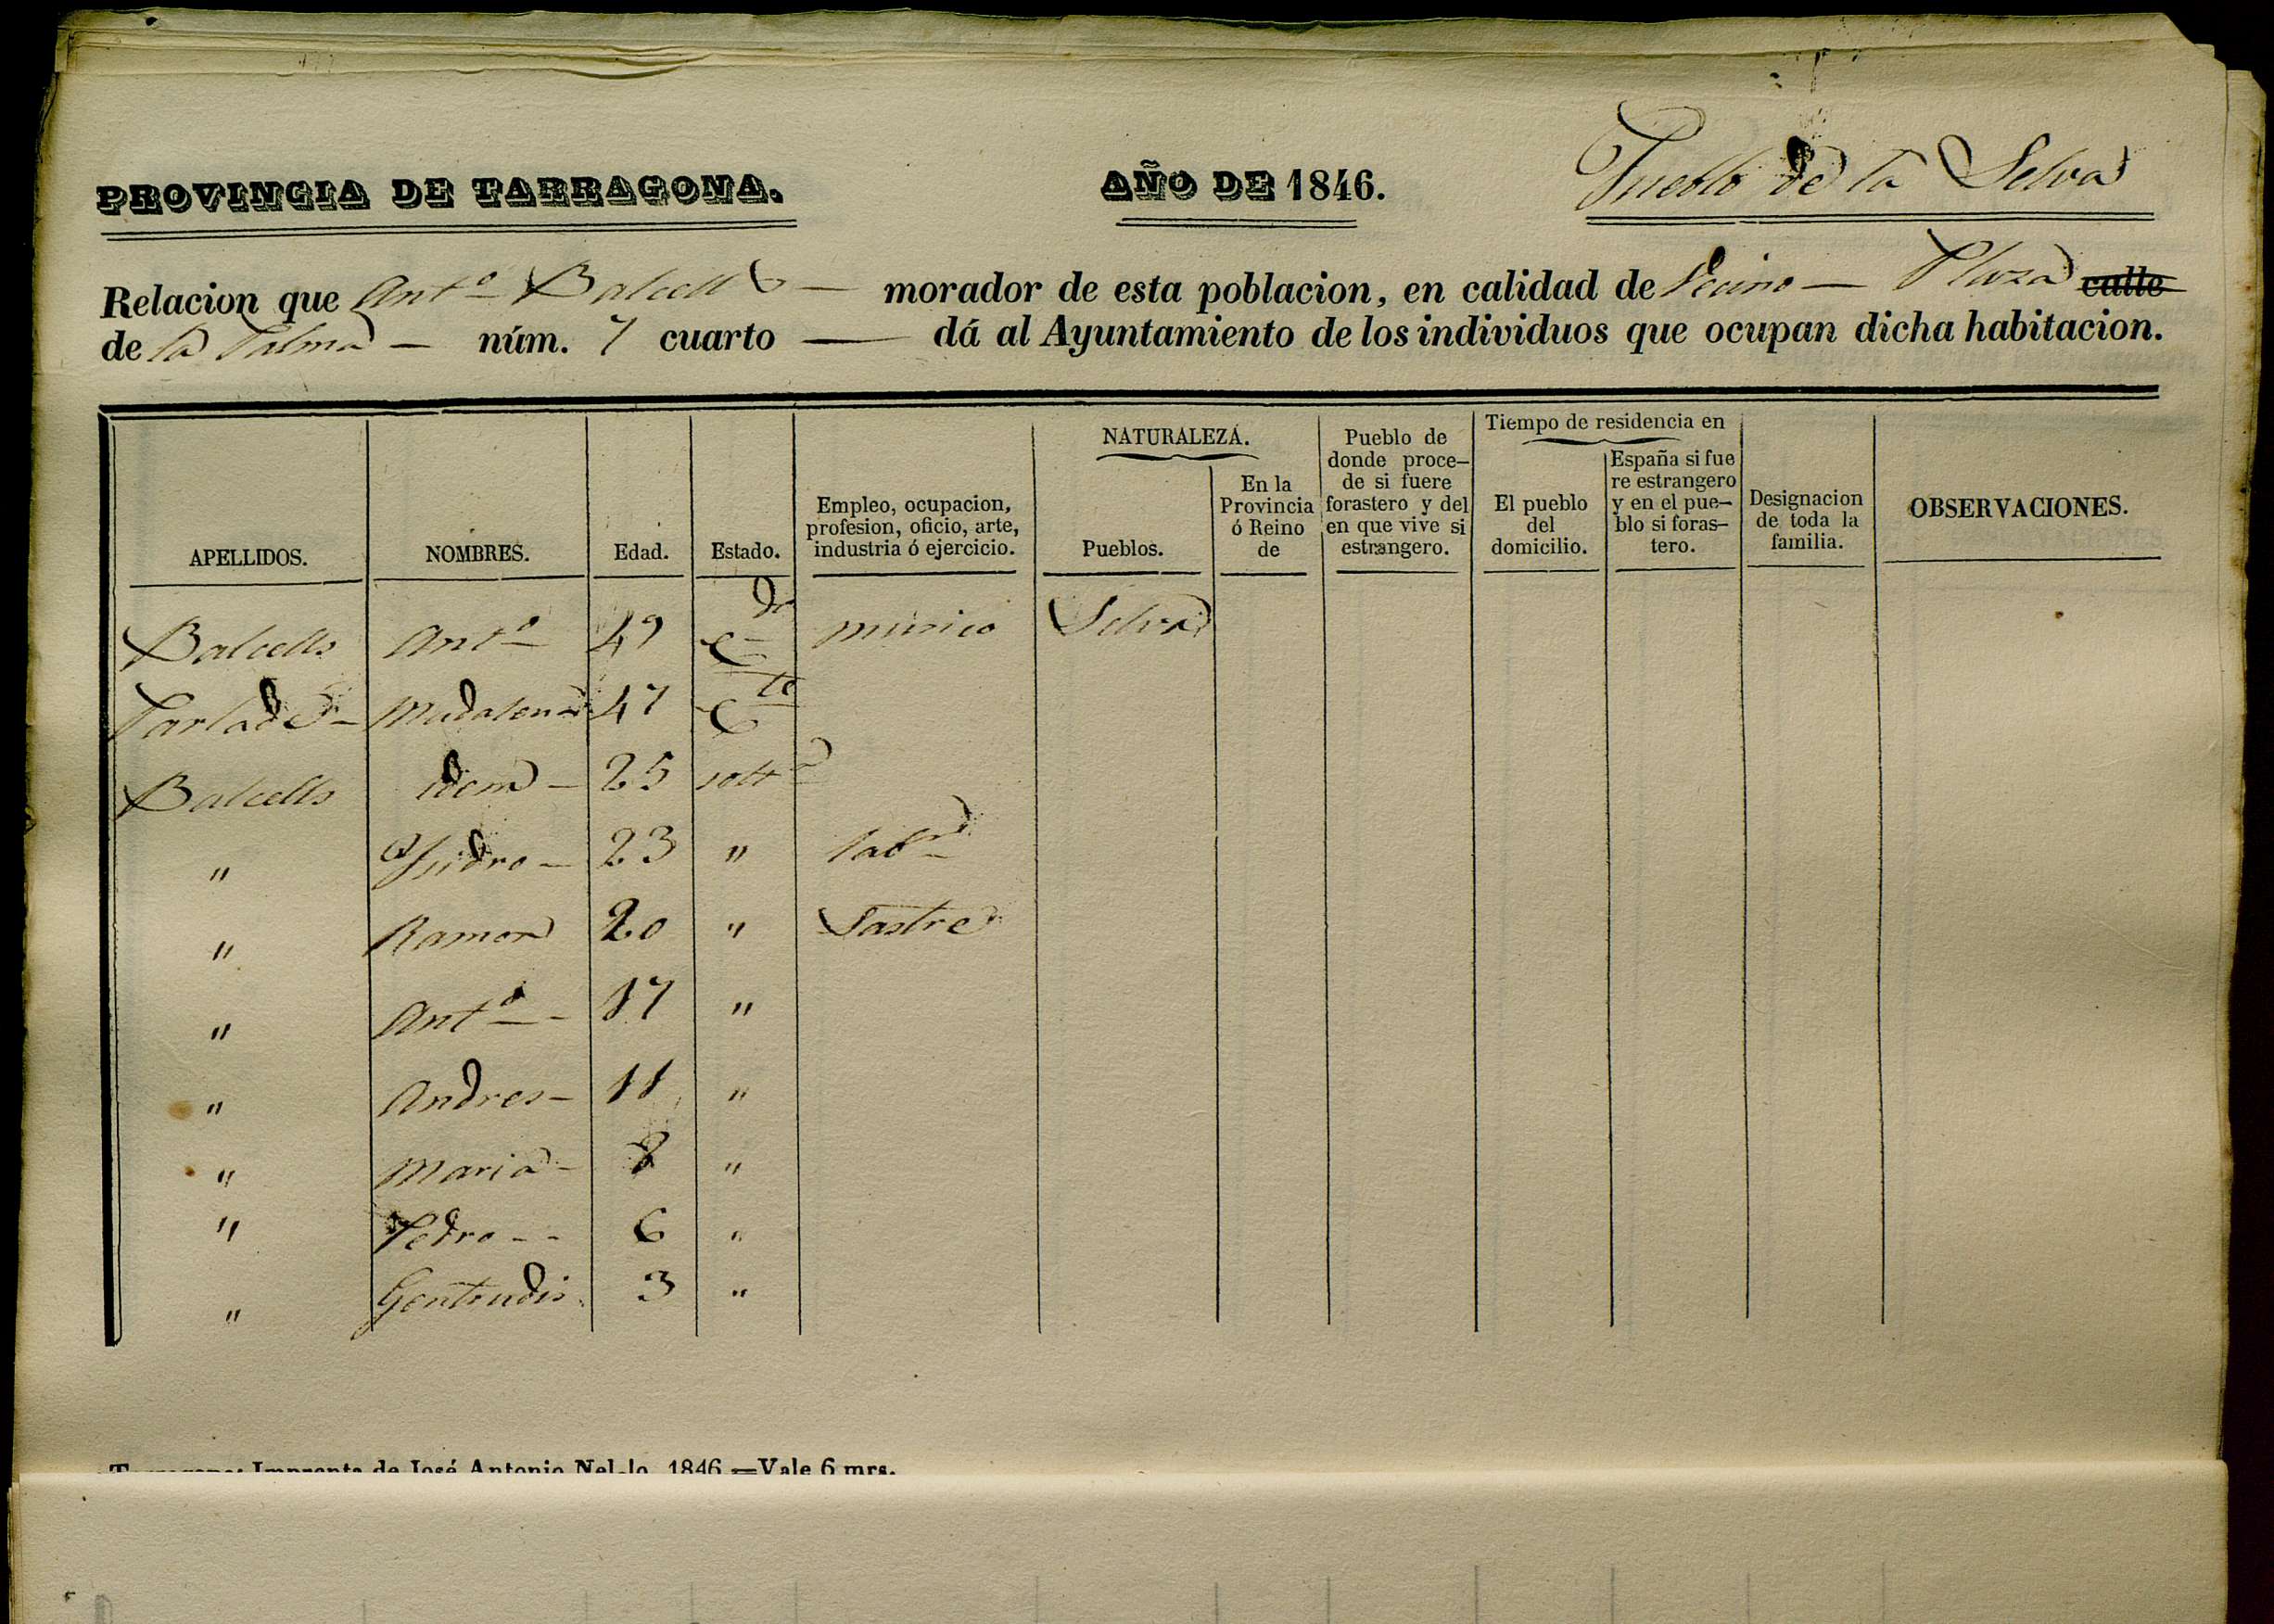 PROVINCIA DE TARRAGONA. AÑO DE 1846. Pueblo de la Selva
Relacion que Ant.º Balcells — morador de esta poblacion, en calidad de Vecino — Plaza calle
de la Palma — núm. 7 cuarto — dá al Ayuntamiento de los individuos que ocupan dicha habitacion.
APELLIDOS. NOMBRES. Edad. Estado. Empleo, ocupacion, profesion, oficio, arte, industria ó ejercicio. NATURALEZA. Pueblos. En la Provincia ó Reino de Pueblo de donde proce- de si fuere forastero y del en que vive si estrangero. Tiempo de residencia en El pueblo del domicilio. España si fue re estrangero y en el pue- blo si foras- tero. Designacion de toda la familia. OBSERVACIONES.
Balcells Ant.º 49 C.do músico Selva
Madalena 47 C.
Balcells idem — 25 solt.a
" Ysidro — 23 " lab.r
" Ramon 20 " Sastre
" Ant.º - 17 "
" Andres — 11 "
" Maria - 8 "
" Pedro - - 6 "
" Gertrudis. 3 "
Tarragona: Imprenta de José Antonio Nel-lo. 1846.=Vale 6 mrs.